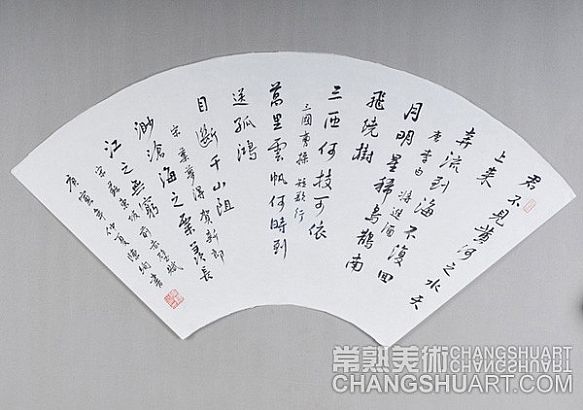 君不見黃河之水天
上来
奔流到海不復回
唐李白 将進酒
月明星稀烏鵲南
飛繞樹
三匝何枝可依
三國曹操 短歌行
萬里雲帆何時到
送孤鴻
目斷千山阻
宋 葉夢得 賀新郎
渺滄海之粟羨長
江之無窮
宋蘇東坡前赤壁賦
庚寅年仲夏陳絢書
常熟美術CHANGSHUART
CHANGSHUART.COM